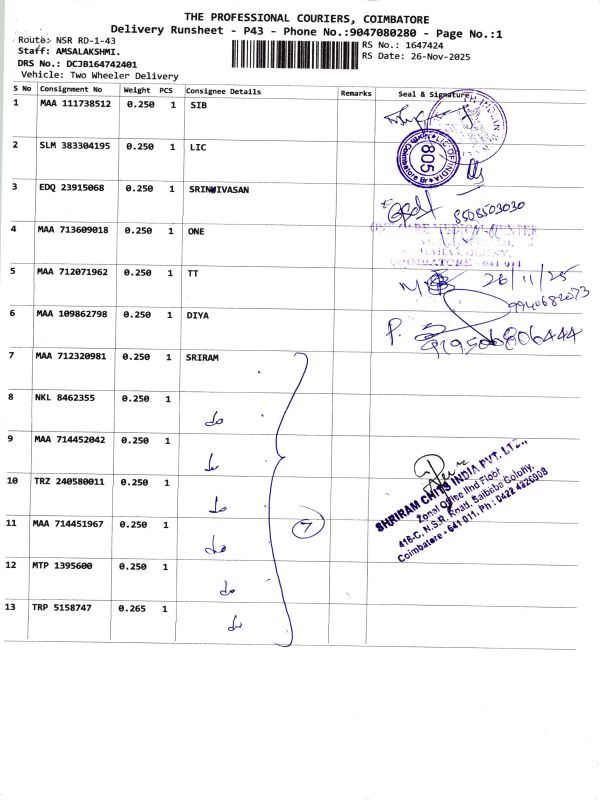 THE PROFESSIONAL COURIERS, COIMBATORE
Delivery Runsheet - P43 - Phone No.:9047080280 - Page No.:1
Route: NSR RD-1-43
RS No.: 1647424
Staff: AMSALAKSHMI.
RS Date: 26-Nov-2025
DRS No.: DCJB164742401
Vehicle: Two Wheeler Delivery
S No Consignment No Weight PCS Consignee Details Remarks Seal & Signature
1 MAA 111738512 0.250 1 SIB
2 SLM 383304195 0.250 1 LIC
LIC OF INDIA
805
3 EDQ 23915068 0.250 1 SRINIVASAN
8508503030
4 MAA 713609018 0.250 1 ONE
COIMBATORE - 641 011
5 MAA 712071962 0.250 1 TT
26/11/25
9940682073
6 MAA 109862798 0.250 1 DIYA
P.
7 MAA 712320981 0.250 1 SRIRAM
8 NKL 8462355 0.250 1 do
9 MAA 714452042 0.250 1 do
10 TRZ 240580011 0.250 1 do
11 MAA 714451967 0.250 1 do
12 MTP 1395600 0.250 1 do
13 TRP 5158747 0.265 1 do
7
SHRIRAM CHITS INDIA PVT. LTD.,
Zonal Office IInd Floor
416-C, N.S.R. Road, Saibaba Colony,
Coimbatore - 641 011. Ph : 0422 4226908